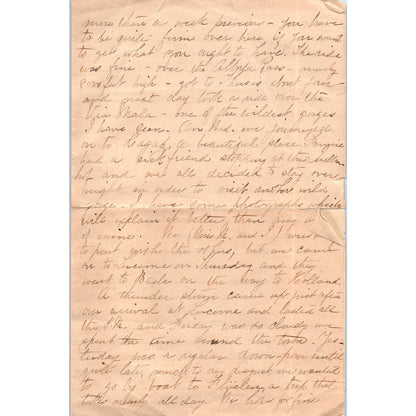 more than a week previous - You have
to be quite firm over here if you want
to get what you ought to have. The ride
was fine - over the Albula Pass - nearly
feet high - got to Thusis about four
and next day took a ride over the
Via Mala - one of the wildest gorges
I have seen. On Wed. we journeyed
on to Ragaz, a beautiful place.
had a sick friend stopping at the
and we all decided to stay over
night, in order to visit another wild
gorge. I have some photographs which
will explain it better than any
of mine. We (Mrs. M. and I) were
to part with the but we came
on to Lucerne on Thursday and they
went to Basle on the way to Holland.
A thunder storm came up just after
our arrival at Lucerne and lasted all
the and Friday was so cloudy we
spent the time around the town. Yes-
terday was a regular down-pour until
quite late, much to my disgust, we wanted
to go by boat to Fluelen, a trip that
takes nearly all day. We